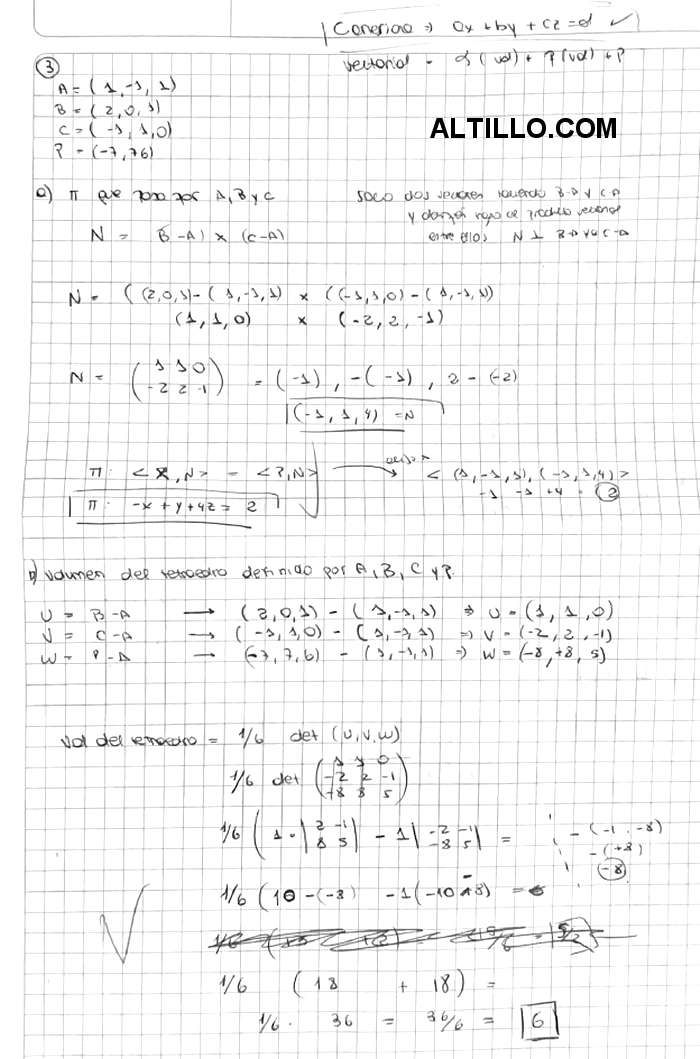 Cartesiano ⇒ ax + by + cz = d ✓
vectorial = α(vd) + β(vd) + P
3
A = (1, -1, 1)
B = (2, 0, 1)
C = (-1, 1, 0)
P = (-7, 7 6)
ALTILLO.COM
a) π que pasa por A, B y C
saco dos vectores haciendo B-A y C-A
N = (B-A) x (C-A)
entre ellos N ⊥ B-A y a C-A
N = ((2,0,1) - (1,-1,1) x ((-1,1,0) - (1,-1,1))
(1, 1, 0) x (-2, 2, -1)
N = (1 1 0
-2 2 -1) = (-1), -(-1), 2 - (-2)
(-1, 1, 4) = N
π: <X, N> = <P, N> → <(1,-1,1), (-1,1,4)>
-1 -1 +4 = 2
π: -x + y + 4z = 2
b) Volumen del tetraedro definido por A, B, C y P.
U = B-A → (2,0,1) - (1,-1,1) ⇒ U = (1, 1, 0)
V = C-A → (-1,1,0) - (1,-1,1) ⇒ V = (-2, 2, -1)
W = P-A → (-7,7,6) - (1,-1,1) ⇒ W = (-8, +8, 5)
Vol del tetraedro = 1/6 det (U, V, W)
1/6 det (1 1 0
-2 2 -1
-8 8 5)
1/6 (1 · |2 -1
8 5| - 1 |-2 -1
-8 5| =
-(-1 · -8)
-(+8)
-8
1/6 (10 -(-8) -1(-10 -8) =
1/6 (18 + 18) =
1/6 · 36 = 36/6 = 6